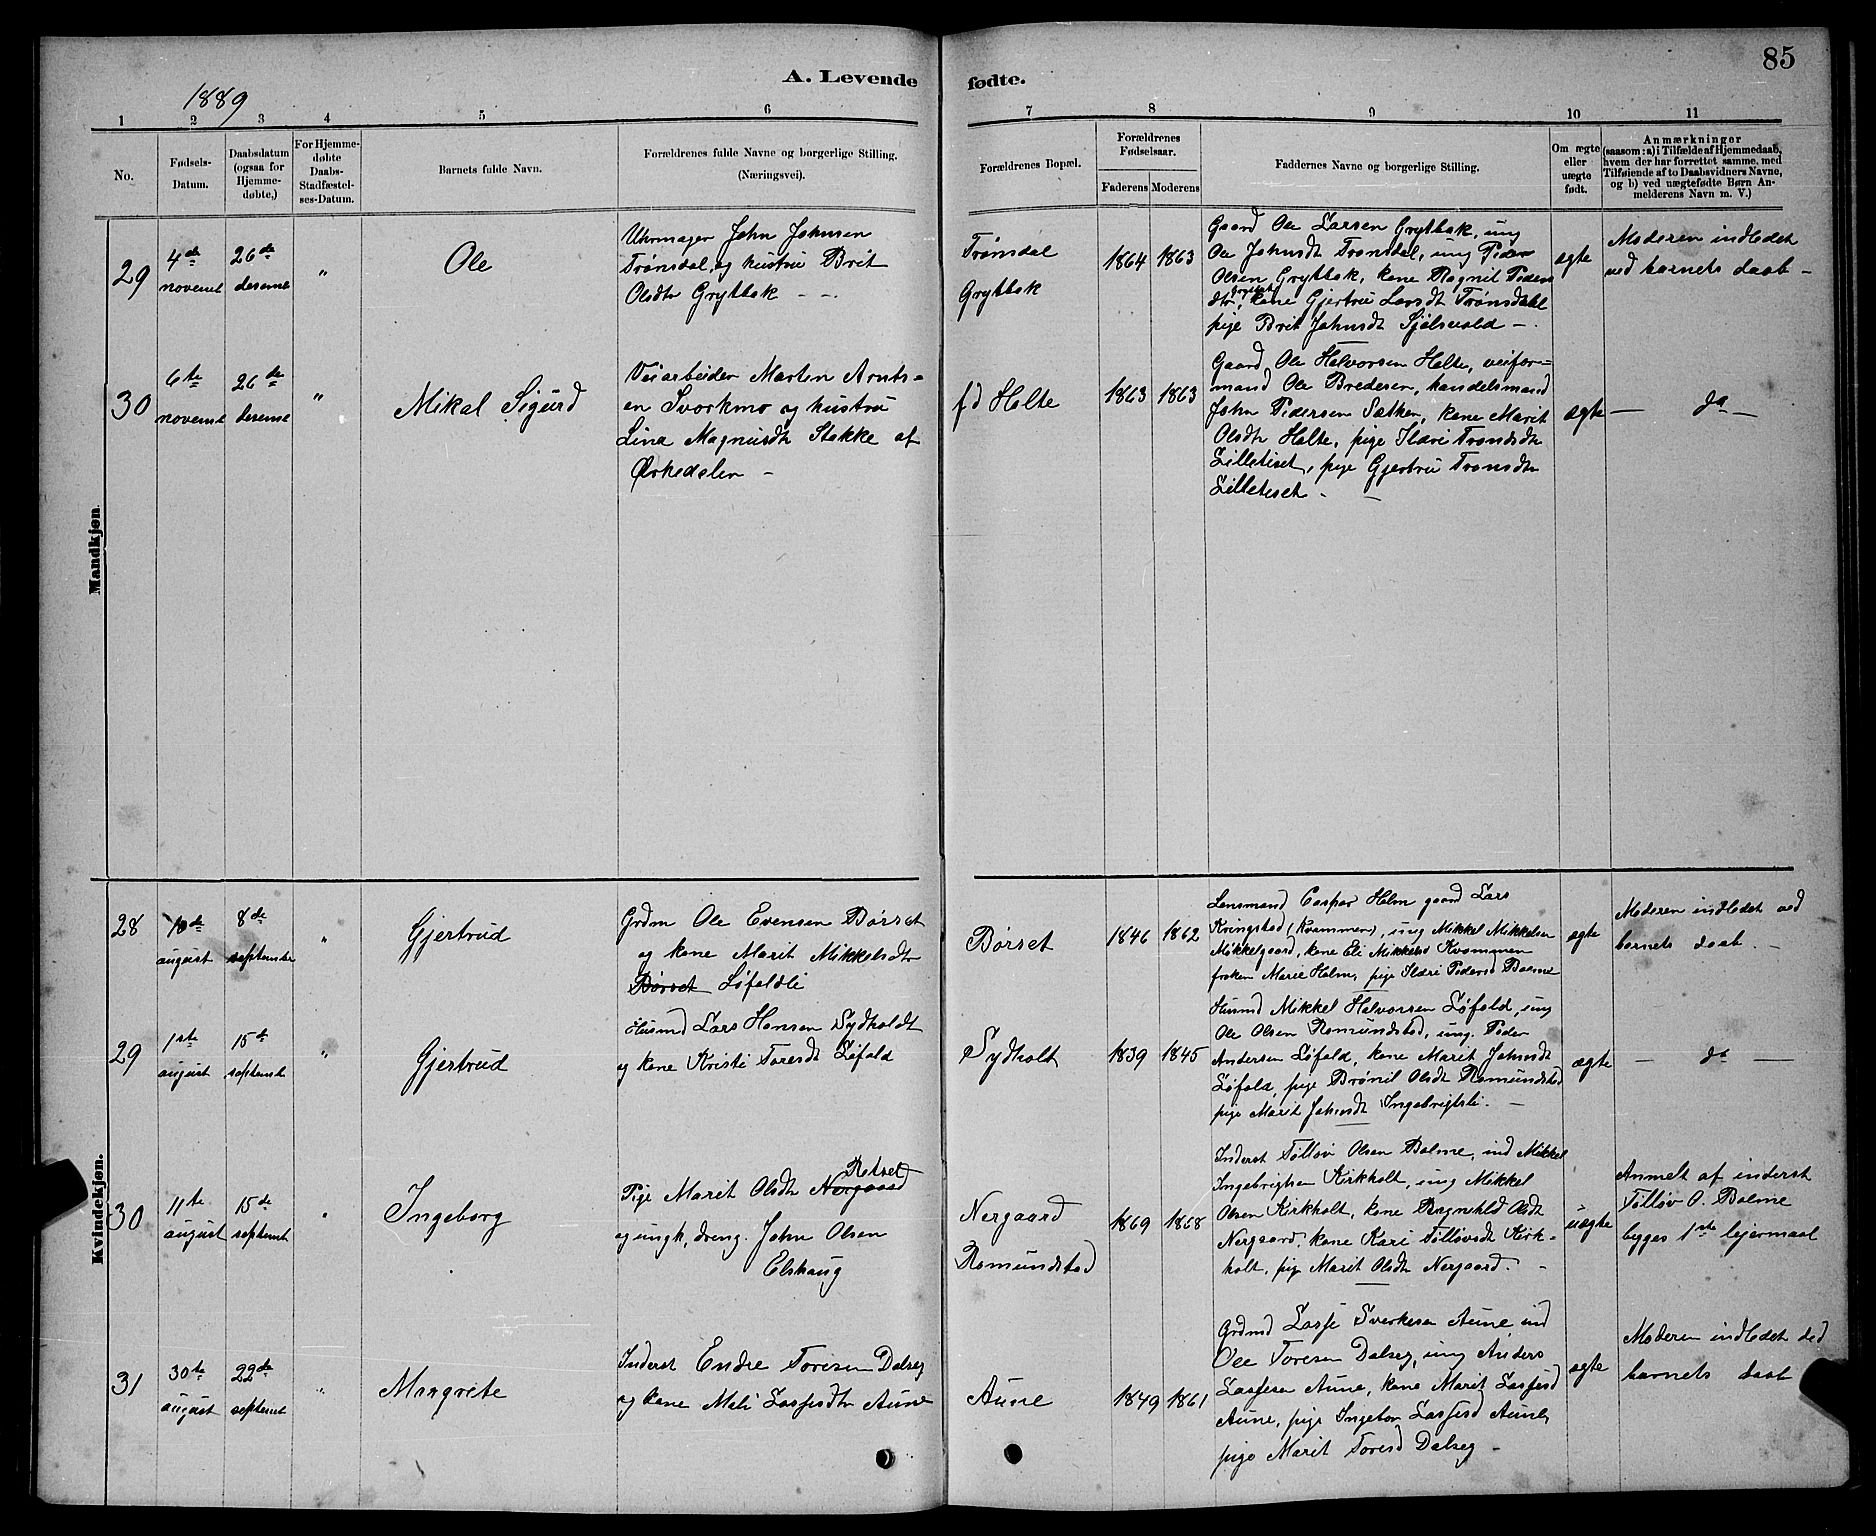 85
1889
A. Levende fødte.
1 2 3 4 5 6 7 8 9 10 11
No.
Fødsels-
Datum.
Daabsdatum
(ogsaa for
Hjemme-
døbte,)
For Hjemme-
døbte
Daabs-
Stadfæstel-
ses-Datum.
Barnets fulde Navn.
Forældrenes fulde Navne og borgerlige Stilling.
(Næringsvei).
Forældrenes Bopæl.
Forældrenes
Fødselsaar.
Faderens Moderens
Faddernes Navne og borgerlige Stilling.
Om ægte
eller
uægte
født.
Anmærkninger
(saasom: a) i Tilfælde af Hjemmedaab,
hvem der har forrettet samme, med
Tilføiende af to Daabsvidners Navne,
og b) ved uægtefødte Børn An-
melderens Navn m. V.)
Mandkjøn.
29
4de
novembt
26de
desembt
"
Ole
Uhrmager John Johnsen
Trønsdal, og hustru Brit
Olsdtr Grytbak - -.
Trønsdal
Grytbak
1864 1863
Gaard Ole Larsen Grytbak, ung
Ole Johnsdt Trønsdal, ung Peder
Olsen Grytbak, kone Magnil Peders
dtr Grytbak, kone Gjertru Larsdt Trønsdal
pige Brit Johnsdt Sjølsvold -.
ægte
Moderen indledet
ved barnets daab -
30
6te
novembt
26de
desembt
"
Mikal Sigurd
Veiarbeider Martin Arnts=
en Svorkmo og hustru
Lina Magnusdt Stokke af
Ørkedalen -
fd Holte
1863 1863
Gaard Ole Halvorsen Holte, veifor=
mand Ole Bredesen, handelsmand
John Pedersen Sætken, kone Marit
Olsdtr Holte, pige Ilari Trondsdtr
Lilletiset, pige Gjertru Trondsdtr
Lilletiset -
ægte
- do -
Kvindekjøn.
28
10de
august
8de
septembr
"
Gjertrud
Grdm Ole Evensen Børset
og kone Marit Mikkelsdtr
Børset Løfaldli
Børset
1846 1862
Lensmand Caspar Holm gaard Lars
Kringstad (Kvammen), ung Mikkel Mikkelsen
Mikkelgaard, kone Eli Mikkelsd Kvammen
frøken Marie Holm, pige Ilari Pedersd Bolme
ægte
Moderen indledet ved
barnets daab. -
29
1ste
august
15de
septembt
"
Gjertrud
Husmd Lars Hansen Sydholdt
og kone Kristi Toresdt Løfald
Sydholt
1839 1845
Husmd Mikkel Halvorsen Løfald, ung
Ole Olsen Romundstad, ung. Peder
Andersen Løfald, kone Marit Johnsdt
Løfald, pige Brønil Olsdt Romundstad
pige Marit Johnsdt Ingebrigtsli. -
ægte
- do -
30
11te
august
15de
septembt
"
Ingeborg
Pige Marit Olsdt Nergaard Retset
og ungk, dreng. John Olsen
Elshaug
Nergaard
Romundstad
1869 1868
Inderst Tølløv Olsen Bolme, ind Mikkel
Ingebrigtsen Kirkholt, ung Mikkel
Olsen Kirkholt, kone Ragnhild Olsdt
Nergaard, kone Kari Tølløvsdt Kirk=
holt, pige Marit Olsdt Nergaard. -
uægte
Anmelt af inderst
Tølløv O. Bolme
begges 1ste lejermaal
31
30te
august
22de
septembt
"
Margrete
Inderst Endre Toresen Dalseg
og kone Mali Lassesdtr Aune
Aune
1849 1861
Grdmd Lasse Sverkesen Aune ind
Ole Toresen Dalseg, ung Anders
Lassesen Aune, kone Marit Lassesd
Aune, pige Ingebor Lassesd Aune,
pige Marit Toresd Dalseg -
ægte
Moderen indledet ved
barnets daab